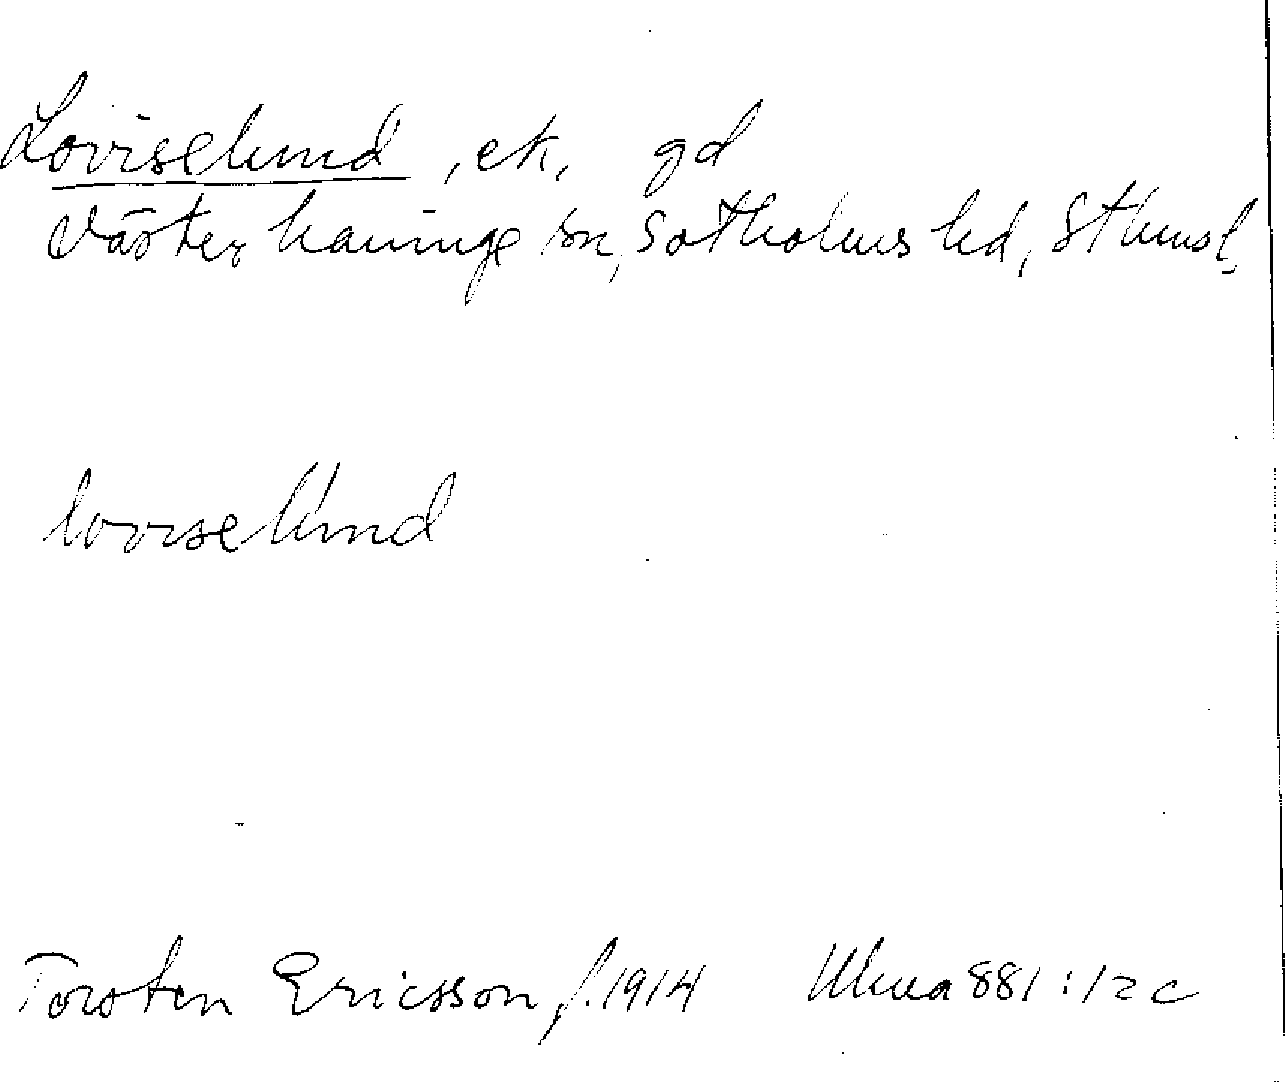 Loviselund, ek, gd
Västerhaninge sn, Sotholms hd, Sthmsl.
loviselund
Torsten Ericsson, f. 1914 881:12c